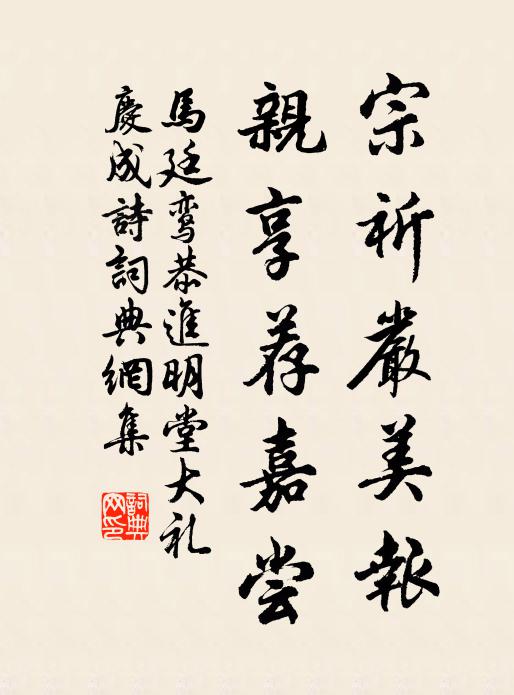 宗祈嚴美報
親享荐嘉尝
馬廷鸾恭進明堂大礼
慶成詩詞典網集
詞典网印